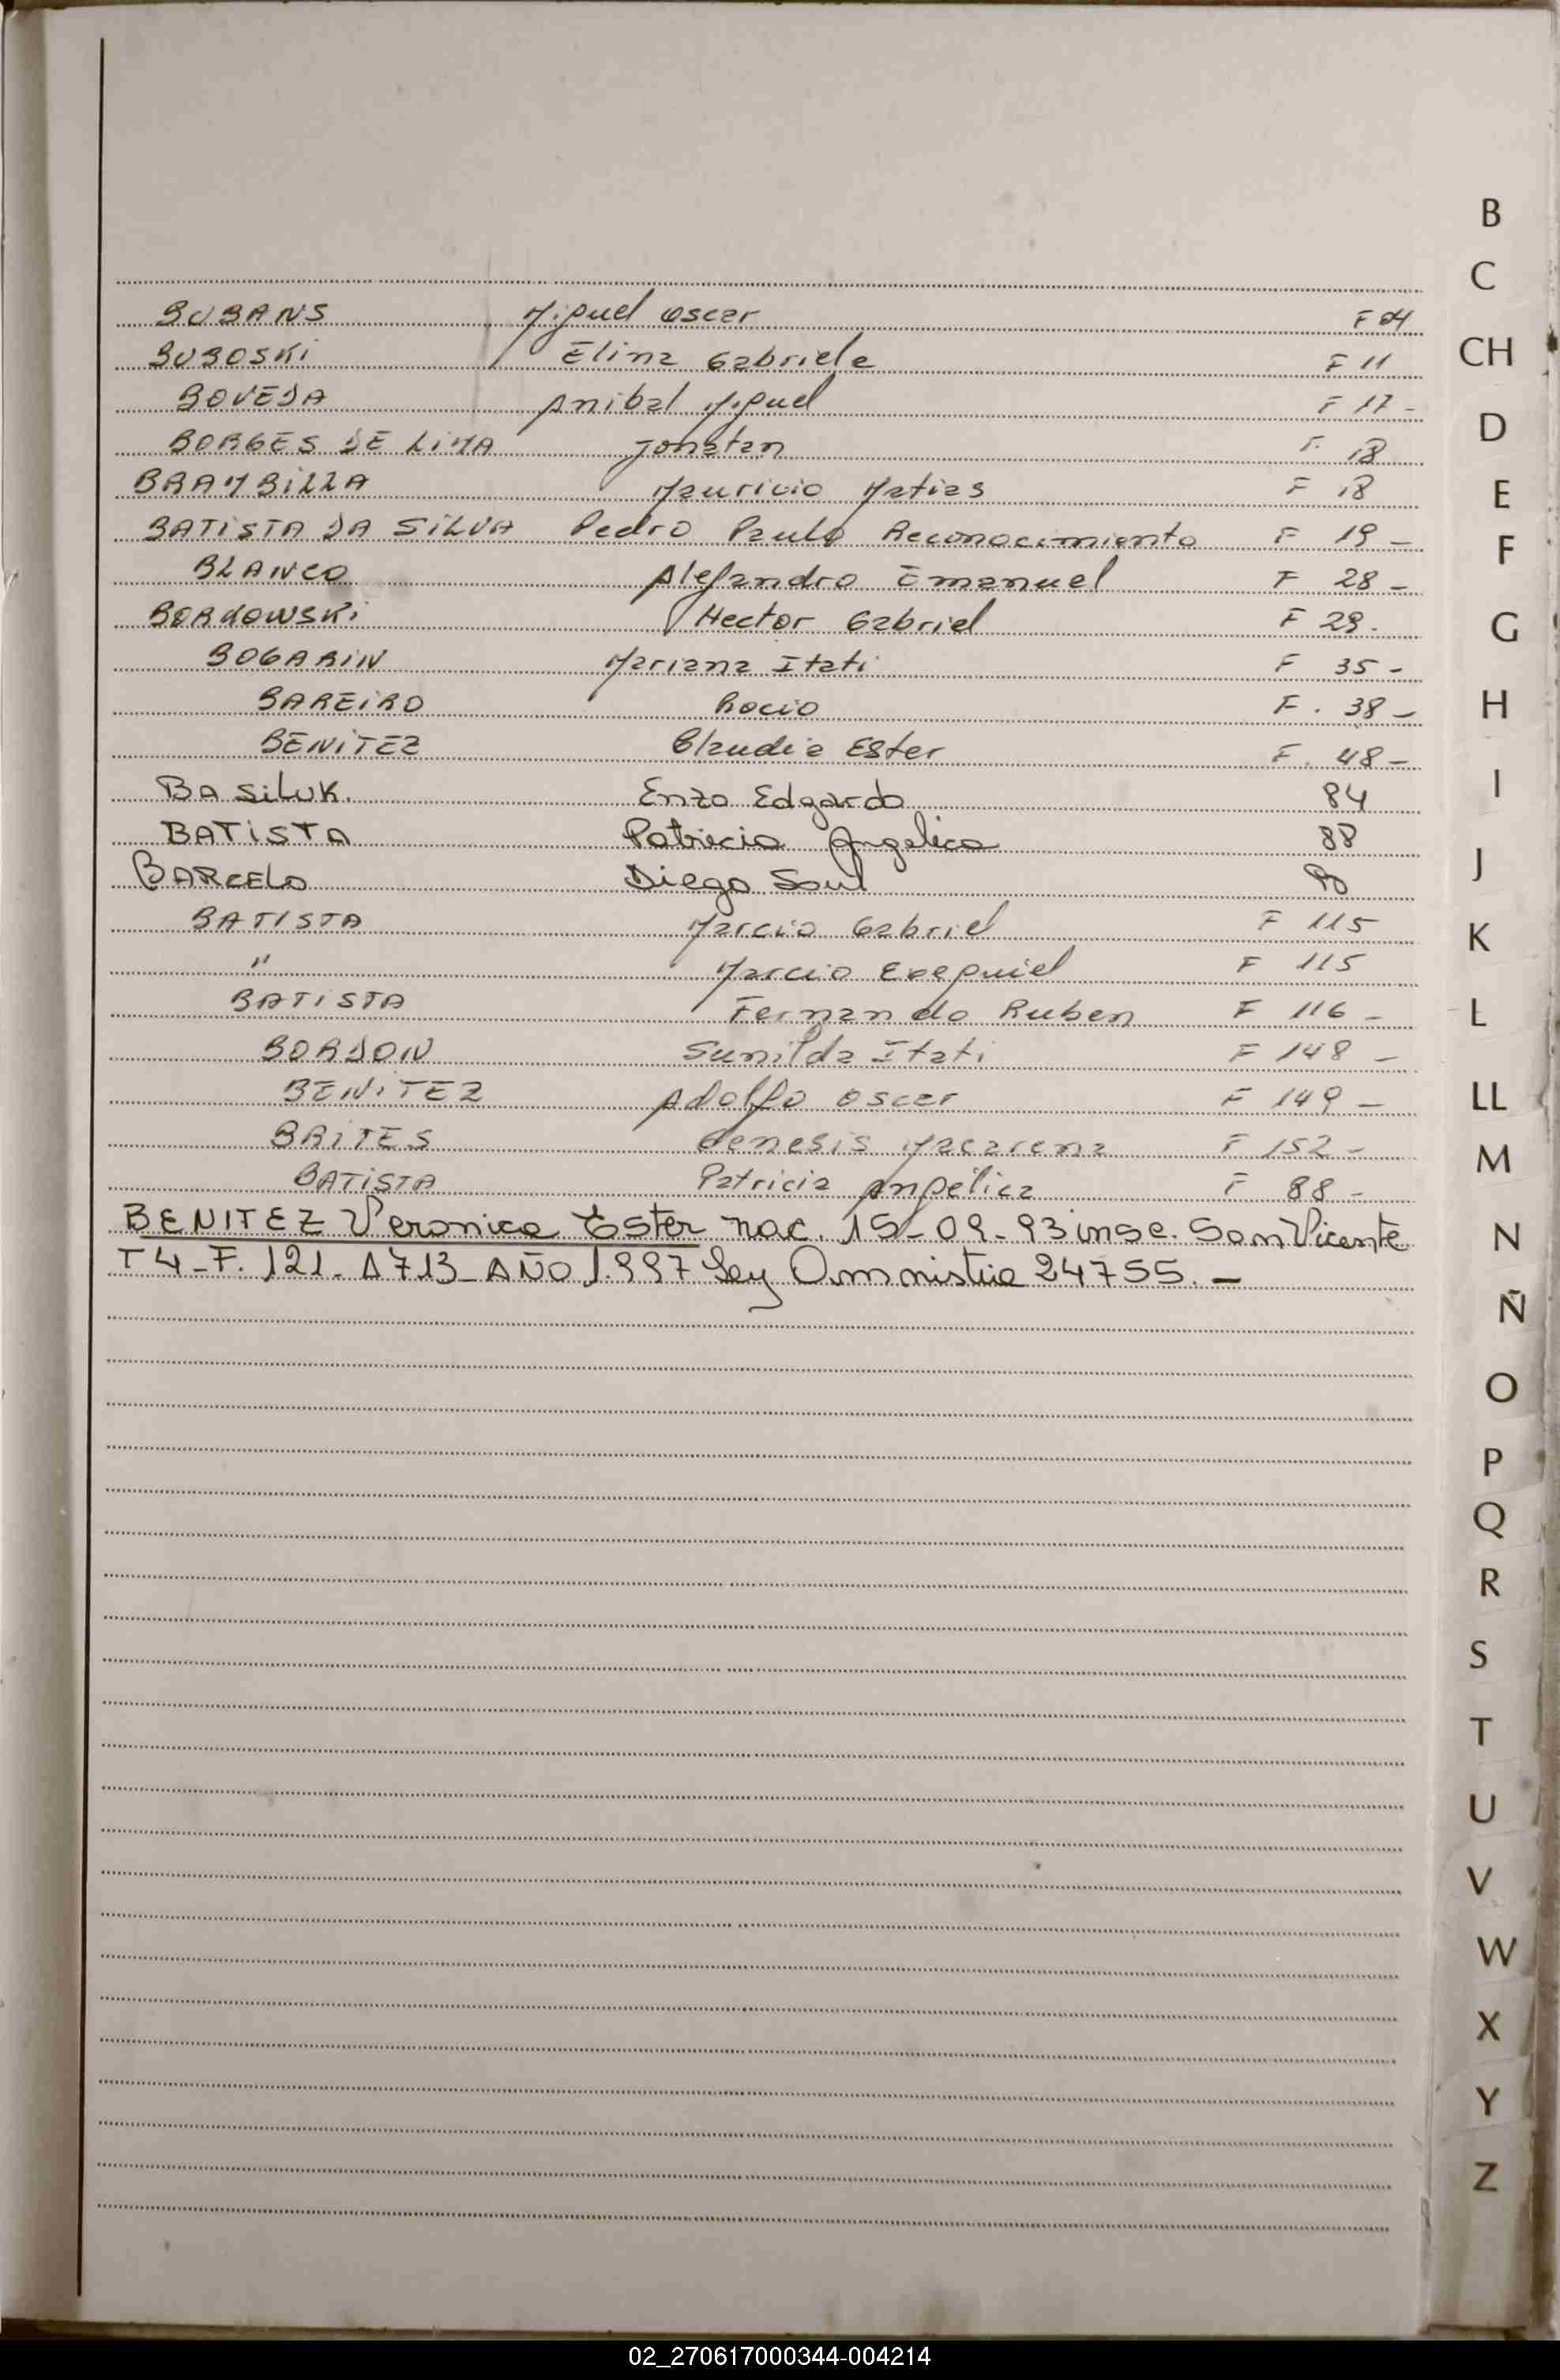 BUBANS Miguel Oscar F 04
BUBOSKi Elina Gabriela F 11
BOVEDA Anibal Miguel F 17 -
BORGES DE LiMA Jonatan F. 18
BRAMBiLLA Mauricio Matias F 18
BATiSTA DA SiLVA Pedro Paulo Reconocimiento F 19 -
BLANCO Alejandro Emanuel F 28 -
BORKOWSKi Hector Gabriel F 29.
BOGARIN Mariana Itati F 35 -
BAREiRO Rocio F. 38 -
BENiTEZ Claudia Ester F. 48 -
BASiLUK. Enzo Edgardo 84
BATiSTA Patricia Angelica 88
BARCELO Diego Saul
BATISTA Marcio Gabriel F 115
" Marcio Ezequiel F 115
BATISTA Fernando Ruben F 116 -
BORDON Sunilda Itati F 148 -
BENiTEZ Adolfo Oscar F 149 -
BRiTES Genesis Macarena F 152 -
BATiSTA Patricia Angélica F 88 -
BENITEZ Veronica Ester nac. 15-09-93 insc. San Vicente
T4-F. 121- A713- AÑO 1.997 Ley Amnistia 24755. -
B
C
CH
D
E
F
G
H
I
J
K
L
LL
M
N
Ñ
O
P
Q
R
S
T
U
V
W
X
Y
Z
02_270617000344-004214